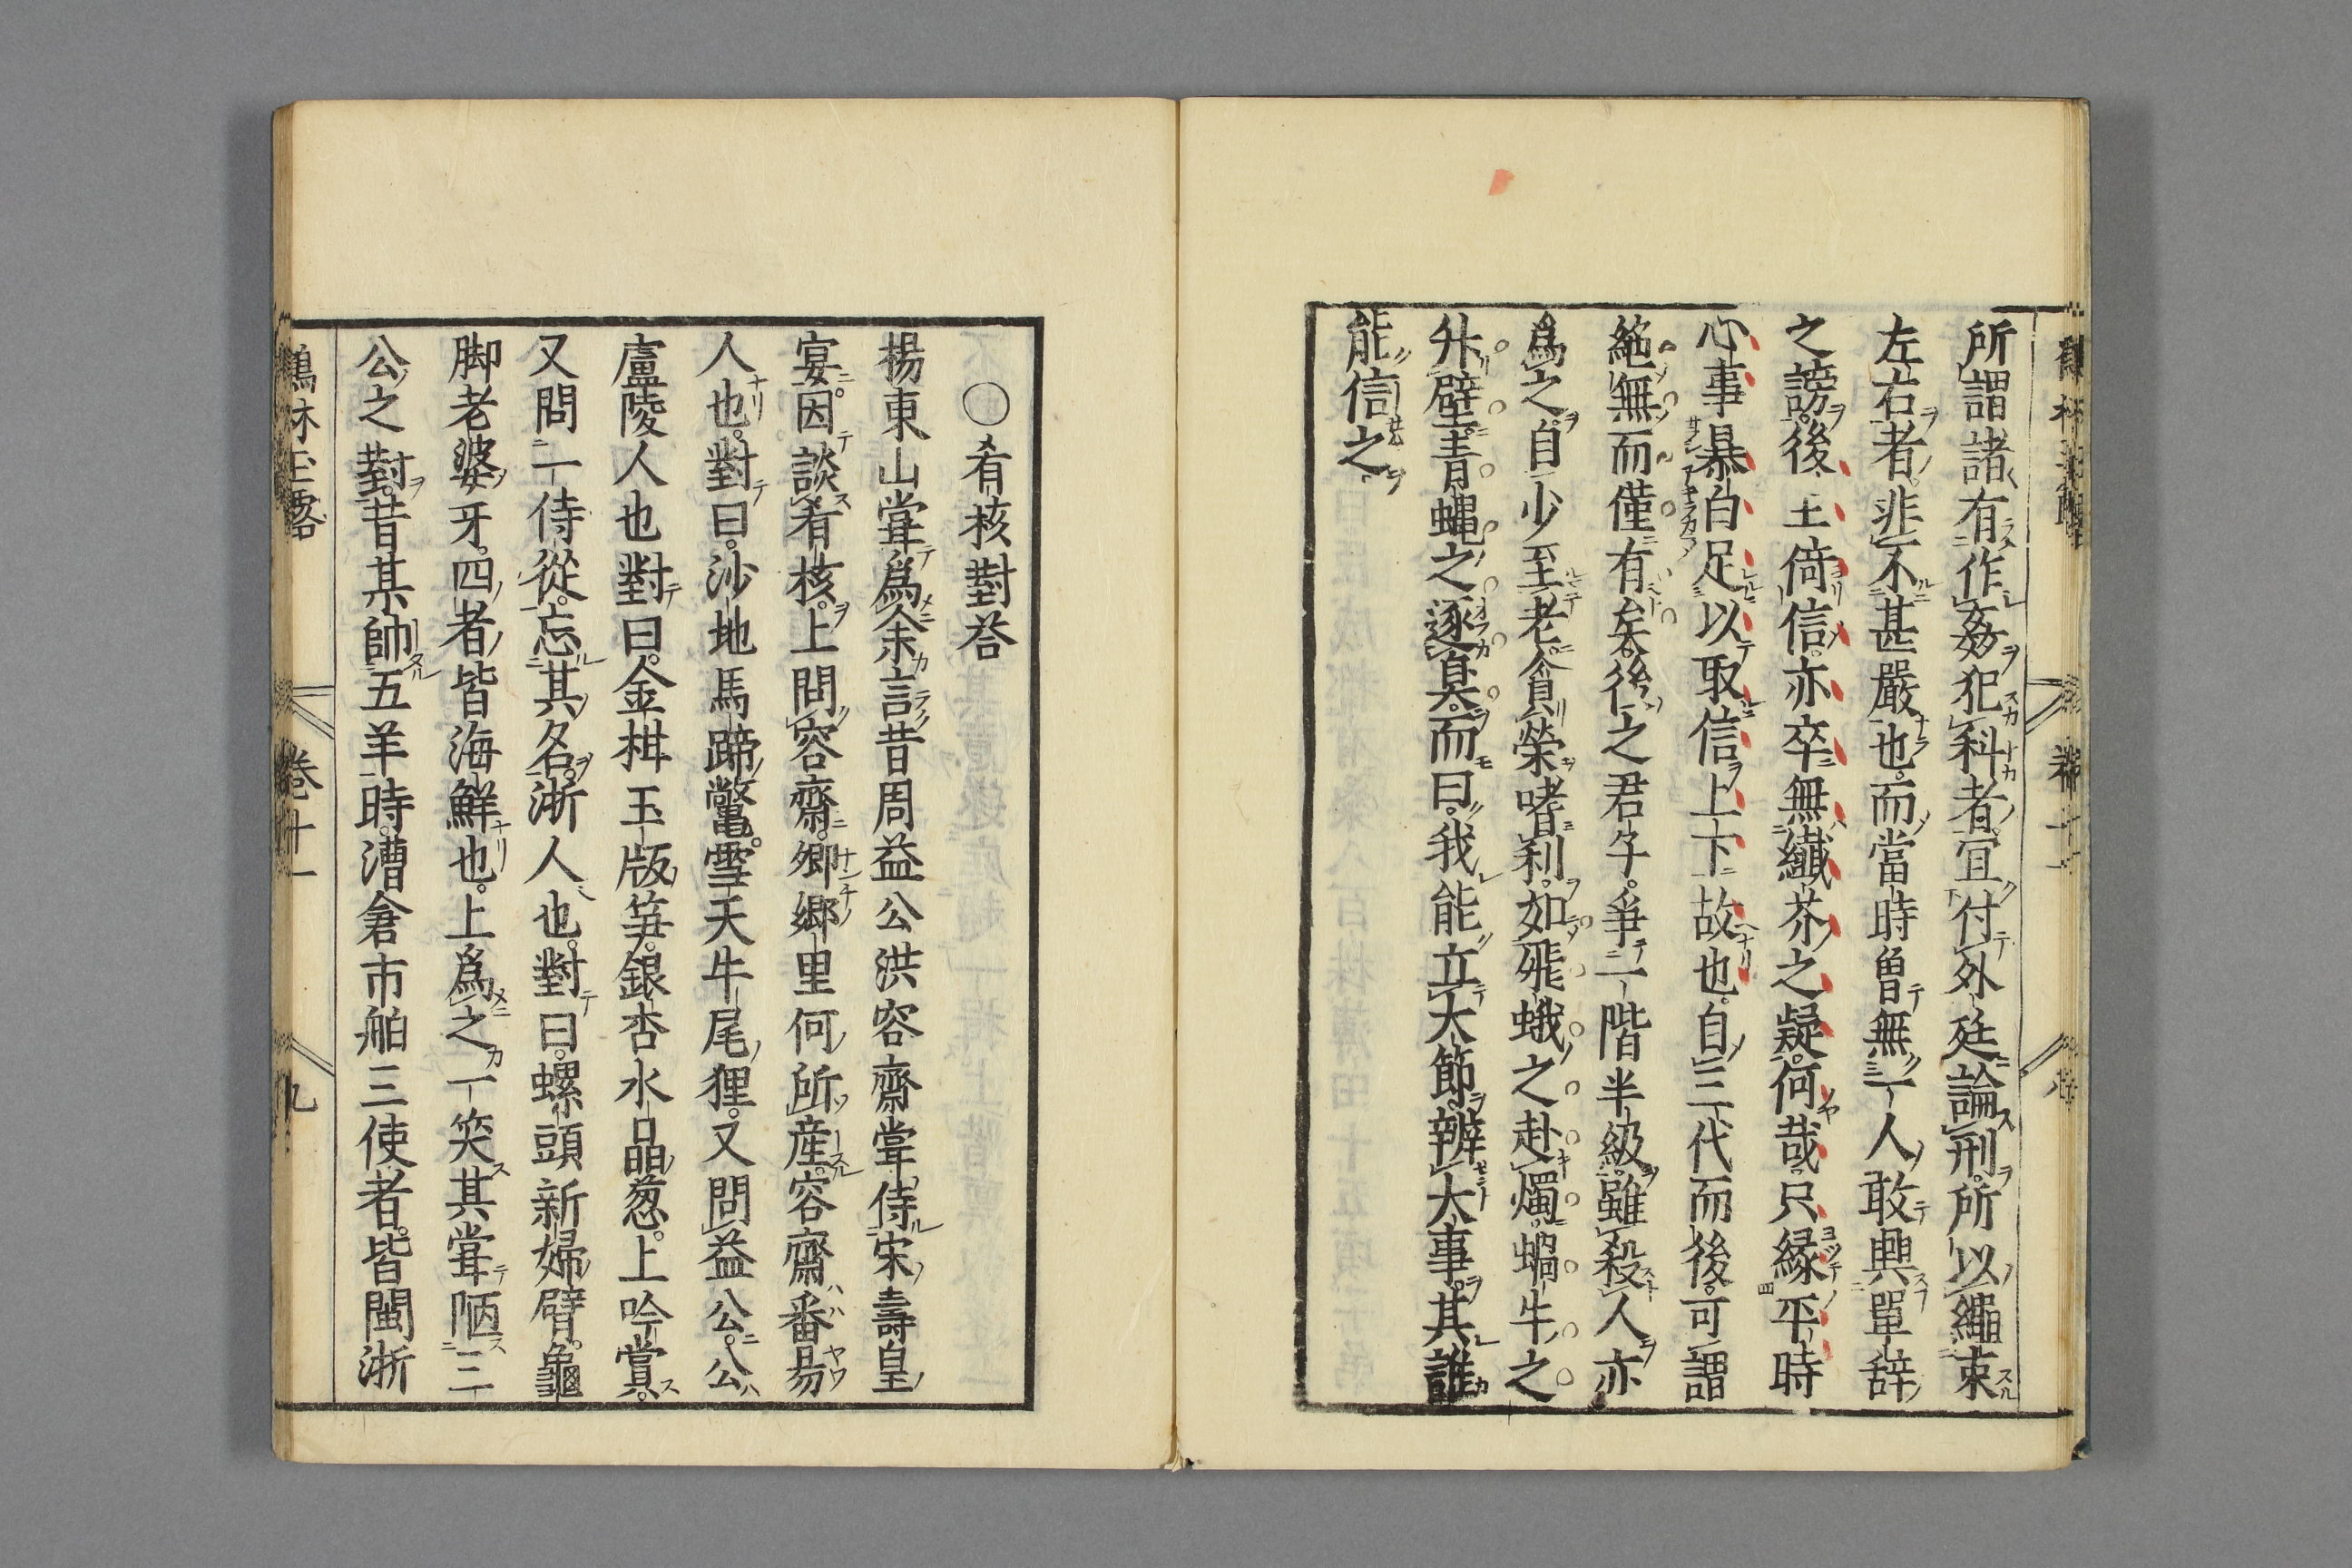 所謂諸有作姦犯科者宜付外廷論刑所以繩束
左右者非不甚嚴也而當時曾無一人敢興單辞
之謗後主倚信亦卒無纖芥之疑何哉只緣平時
心事暴白足以取信上下故也自三代而後可謂
絶無而僅有矣後之君子爭一階半級雖殺人亦
爲之自少至老貪榮嗜利如飛蛾之赴燭蝸牛之
升壁青蠅之逐臭而曰我能立大節辨大事其誰
能信之
○肴核對荅
楊東山嘗爲余言昔周益公洪容齋嘗侍宋壽皇
宴因談肴核上問容齋卿鄉里何所産容齋番昜
人也對曰沙地馬蹄鼈雪天牛尾狸又問益公公
廬陵人也對曰金柑玉版笋銀杏水晶葱上吟賞
又問一侍從忘其名浙人也對曰螺頭新婦臂龜
脚老婆牙四者皆海鮮也上爲之一笑其嘗陋三
公之對昔某帥五羊時漕倉市舶三使者皆閩浙
鶴林玉露 卷十一 九